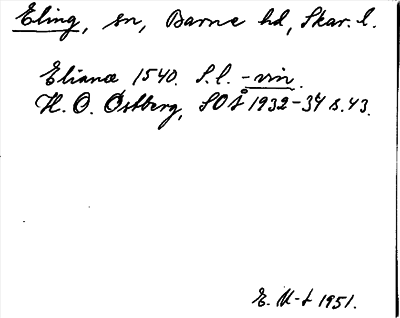 Eling, sn, Barne hd, Skar. l.
Elianæ 1540. S. l. -vin.
H. O. Östberg, SOÅ 1932-34 s. 43.
E. M-t 1951.